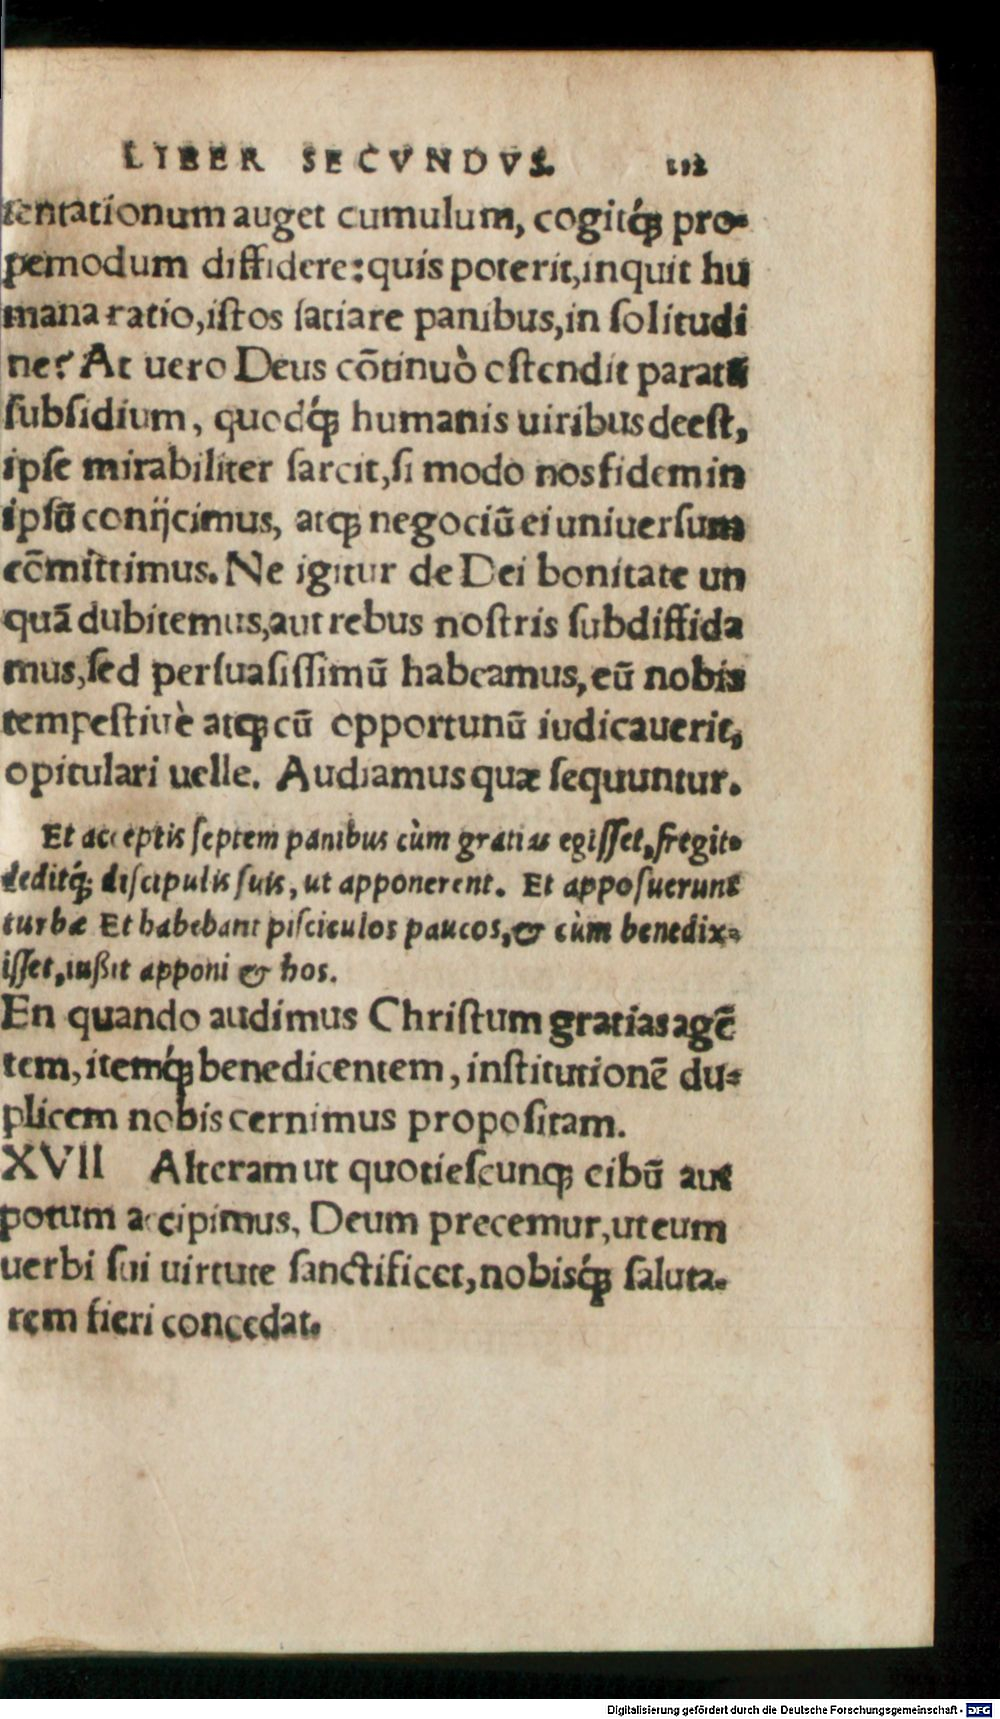 LIBER SECVNDVS. 112
tentationum auget cumulum, cogitq́; pro-
pemodum diffidere: quis poterit, inquit hu
mana ratio, istos satiare panibus, in solitudi
ne? At uero Deus cōtinuò ostendit paratū
subsidium, quodq́; humanis uiribus deest,
ipse mirabiliter sarcit, si modo nos fidem in
ipsū conijcimus, atq; negociū ei uniuersum
cōmittimus. Ne igitur de Dei bonitate un
quā dubitemus, aut rebus nostris subdiffida
mus, sed persuasissimū habeamus, eū nobis
tempestiuè atq; cū opportunū iudicauerit,
opitulari uelle. Audiamus quæ sequuntur.
Et acceptis septem panibus cùm gratias egisset, fregit
deditq́; discipulis suis, ut apponerent. Et apposuerunt
turbæ Et habebant pisciculos paucos, & cùm benedix-
isset, iußit apponi & hos.
En quando audimus Christum gratias agē
tem, itemq́; benedicentem, institutionē du-
plicem nobis cernimus propositam.
XVII Alteram ut quotiescunq; cibū aut
potum accipimus, Deum precemur, ut eum
uerbi sui uirtute sanctificet, nobisq́; saluta-
rem fieri concedat.
Digitalisierung gefördert durch die Deutsche Forschungsgemeinschaft - DFG